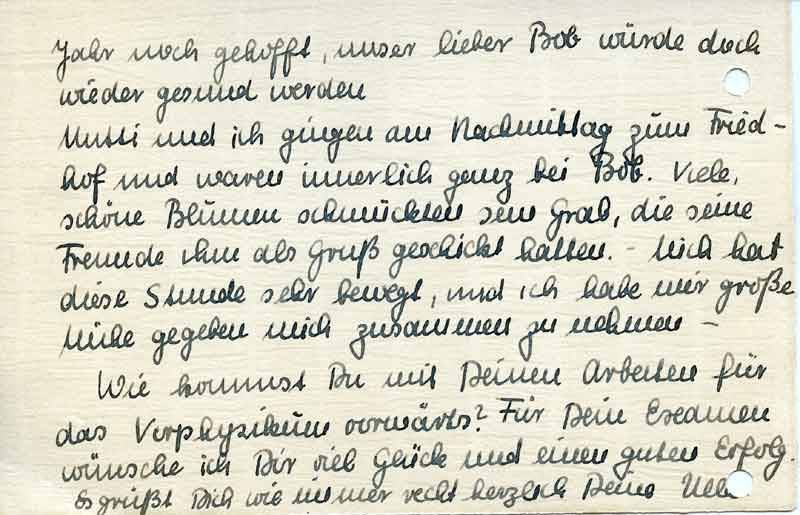 Jahr noch gehofft, unser lieber Bob würde doch
wieder gesund werden
Mutti und ich gingen am Nachmittag zum Fried-
hof und waren innerlich ganz bei Bob. Viele,
schöne Blumen schmückten sein Grab, die seine
Freunde ihm als Gruß geschickt hatten. - Mich hat
diese Stunde sehr bewegt, und ich habe mir große
Mühe gegeben mich zusammen zu nehmen -
Wie kommst Du mit Deinen Arbeiten für
das Vorphysikum vorwärts? Für Dein Examen
wünsche ich Dir viel Glück und einen guten Erfolg.
Es grüßt Dich wie immer recht herzlich Deine